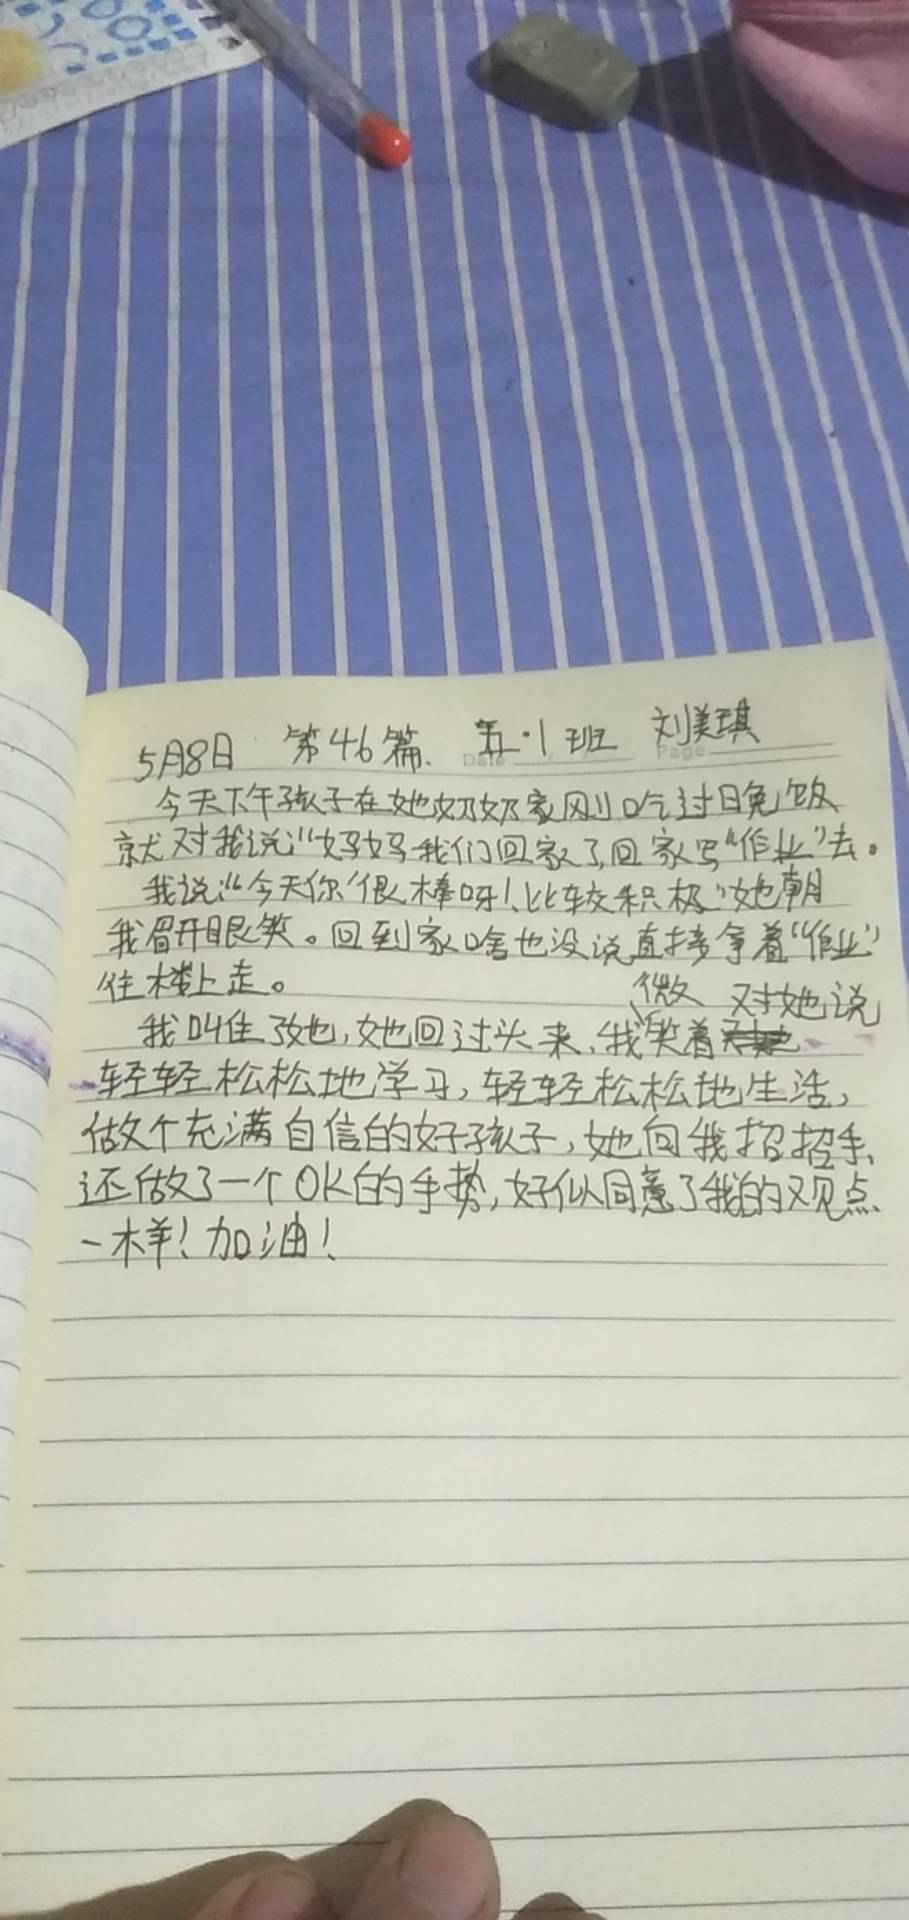 5月8日 第46篇. 五·1班 刘美琪
Date Page
今天下午孩子在她奶奶家刚吃过晚饭
就对我说:“妈妈我们回家了,回家写“作业”去。
我说:“今天你很棒呀!比较积极”她朝
我眉开眼笑。回到家啥也没说直接拿着“作业”
往楼上走。
我叫住了她,她回过头来,我微笑着对她说
轻轻松松地学习,轻轻松松地生活,
做个充满自信的好孩子,她向我招招手、
还做了一个OK的手势,好似同意了我的观点
一样!加油!